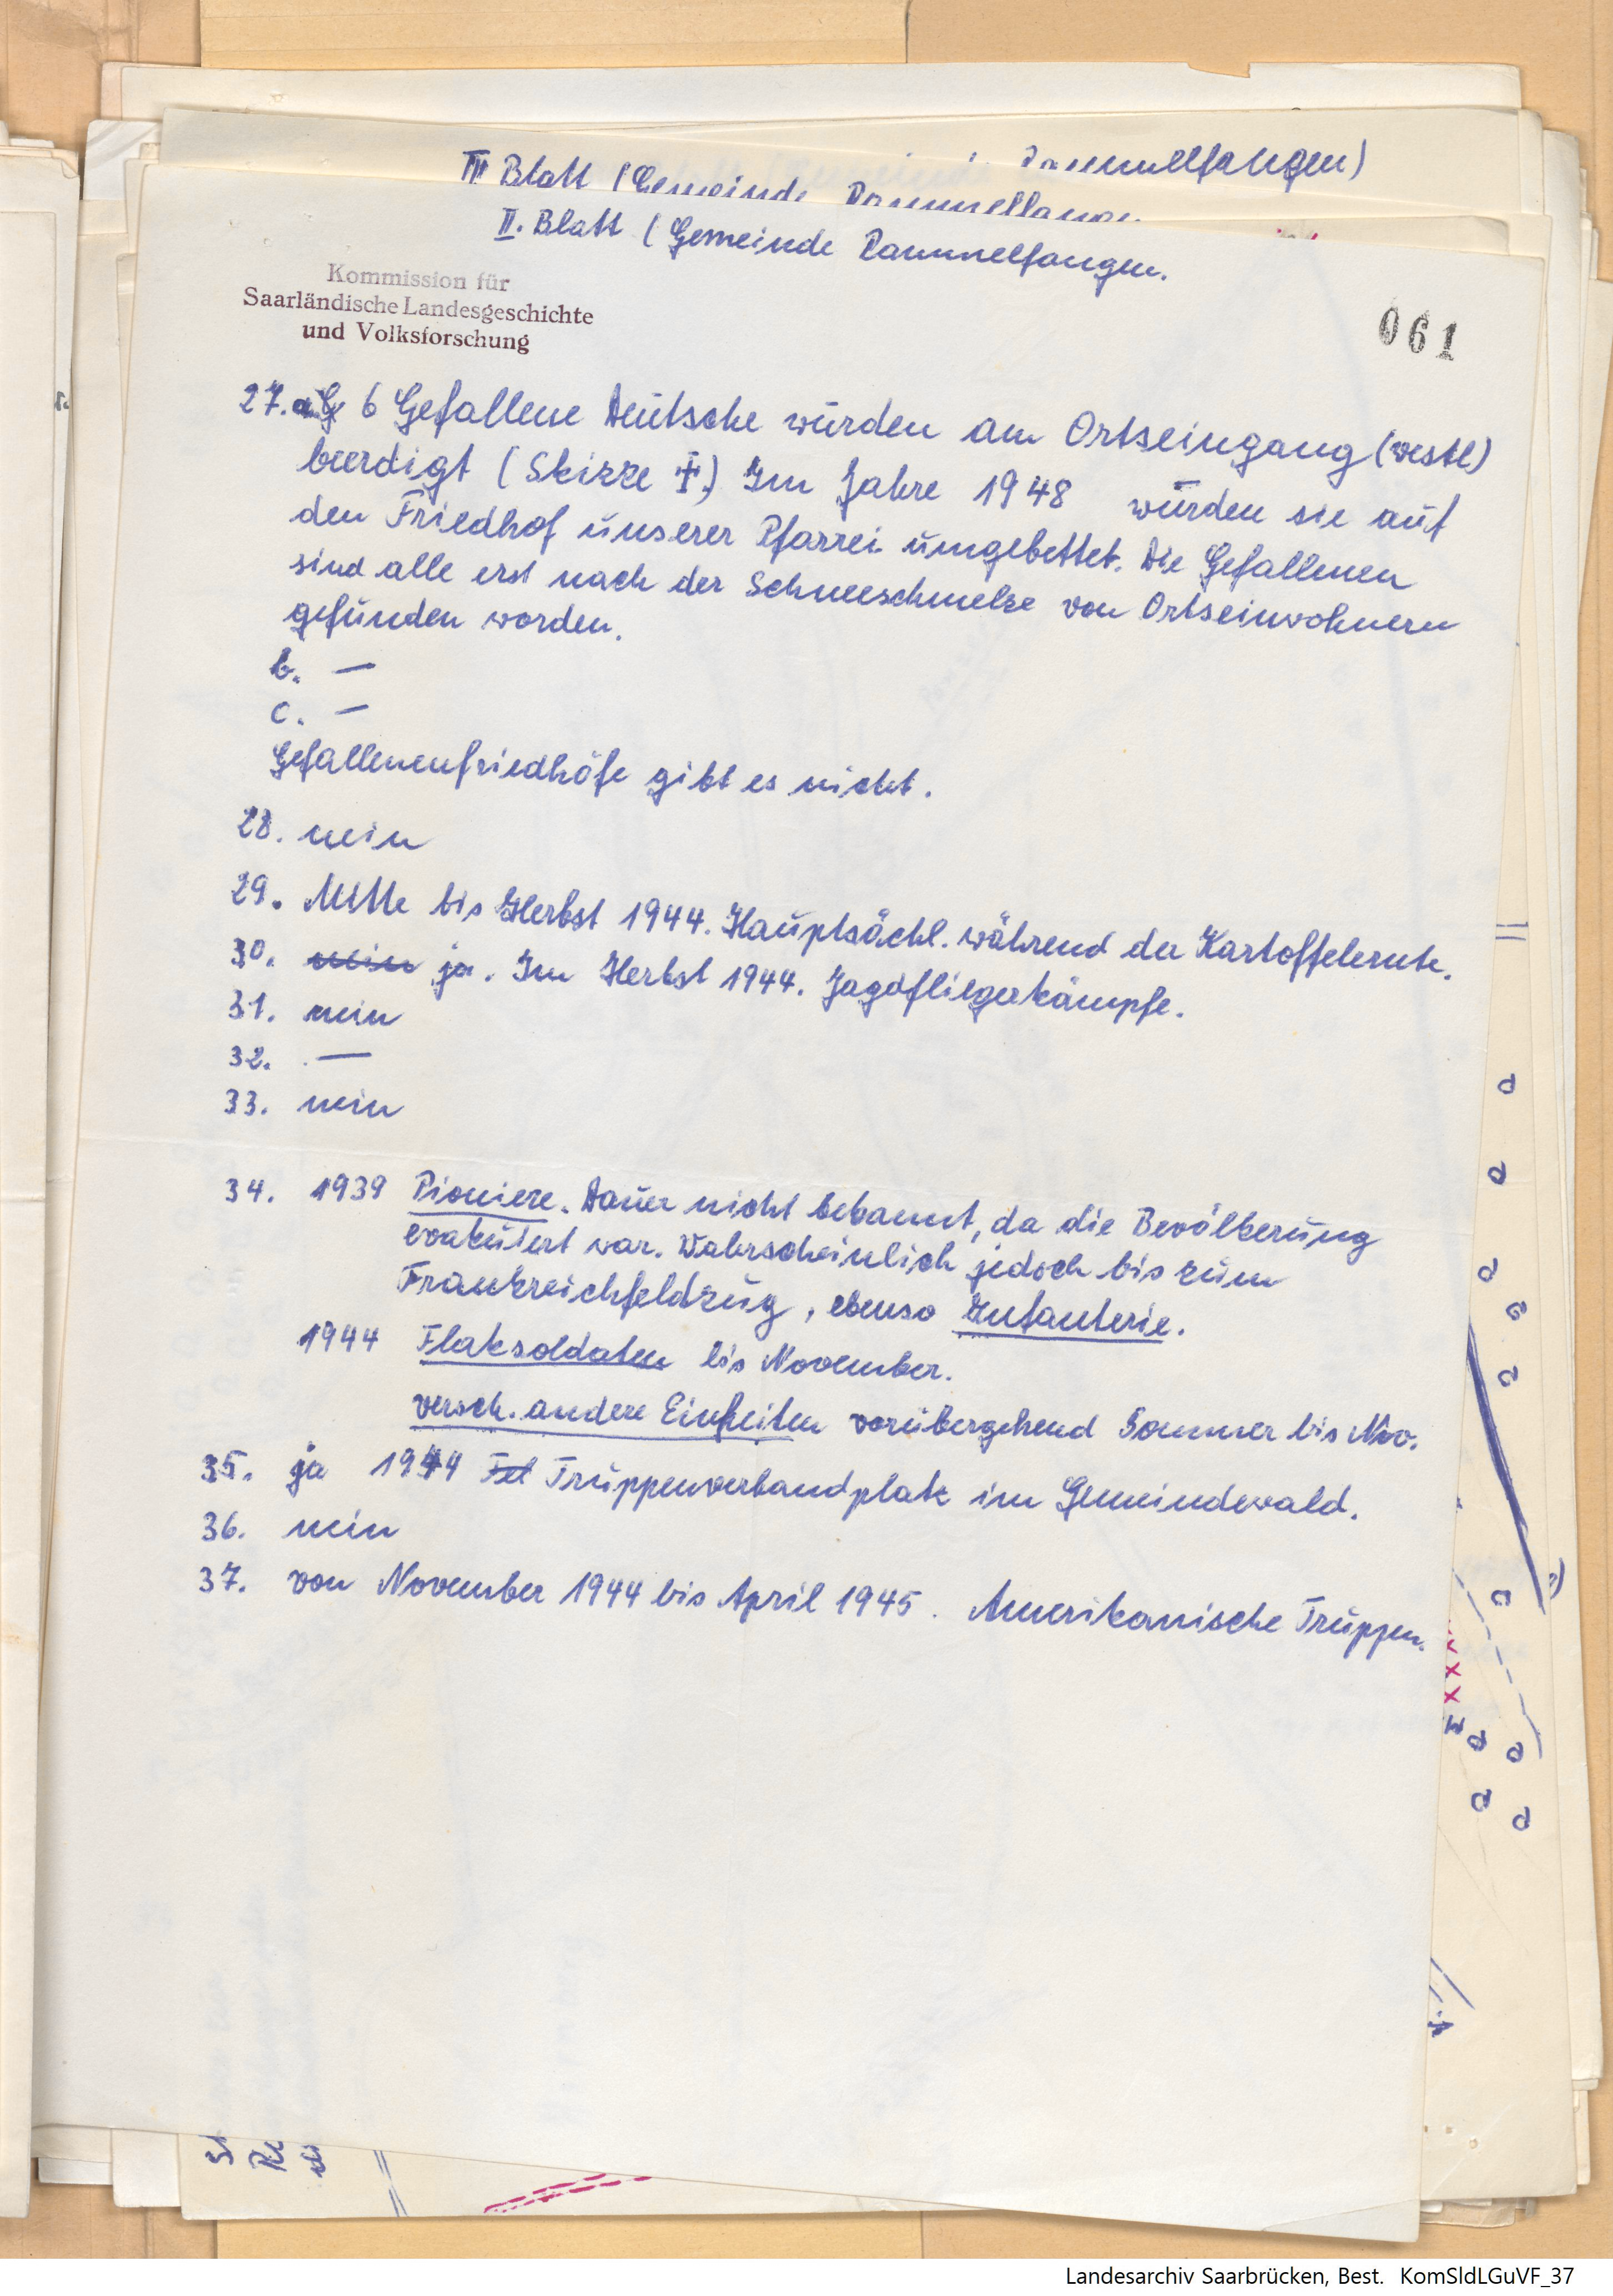 Rammelfangen)
III Blatt (Gemeinde Rammelfangen
II. Blatt (Gemeinde Rammelfangen.
Kommission für
Saarländische Landesgeschichte
und Volksforschung
061
27. a. 6 Gefallene Deutsche wurden am Ortseingang (westl)
beerdigt (Skizze ‡) Im Jahre 1948 wurden sie auf
den Friedhof unserer Pfarrei umgebettet. Die Gefallenen
sind alle erst nach der Schneeschmelze von Ortseinwohnern
gefunden worden.
b. —
c. —
Gefallenenfriedhöfe gibt es nicht.
28. nein
29. Mitte bis Herbst 1944. Hauptsächl. während der Kartoffelernte.
30. nein ja. Im Herbst 1944. Jagdfliegerkämpfe.
31. nein
32. —
33. nein
34. 1939 Pioniere. Dauer nicht bekannt, da die Bevölkerung
evakuiert war. Wahrscheinlich jedoch bis zum
Frankreichfeldzug, ebenso Infanterie.
1944 Flaksoldaten bis November.
versch. andere Einheiten vorübergehend Sommer bis Nov.
35. ja 1944 Truppenverbandplatz im Gemeindewald.
36. nein
37. von November 1944 bis April 1945. Amerikanische Truppen.
Landesarchiv Saarbrücken, Best. KomSldLGuVF_37